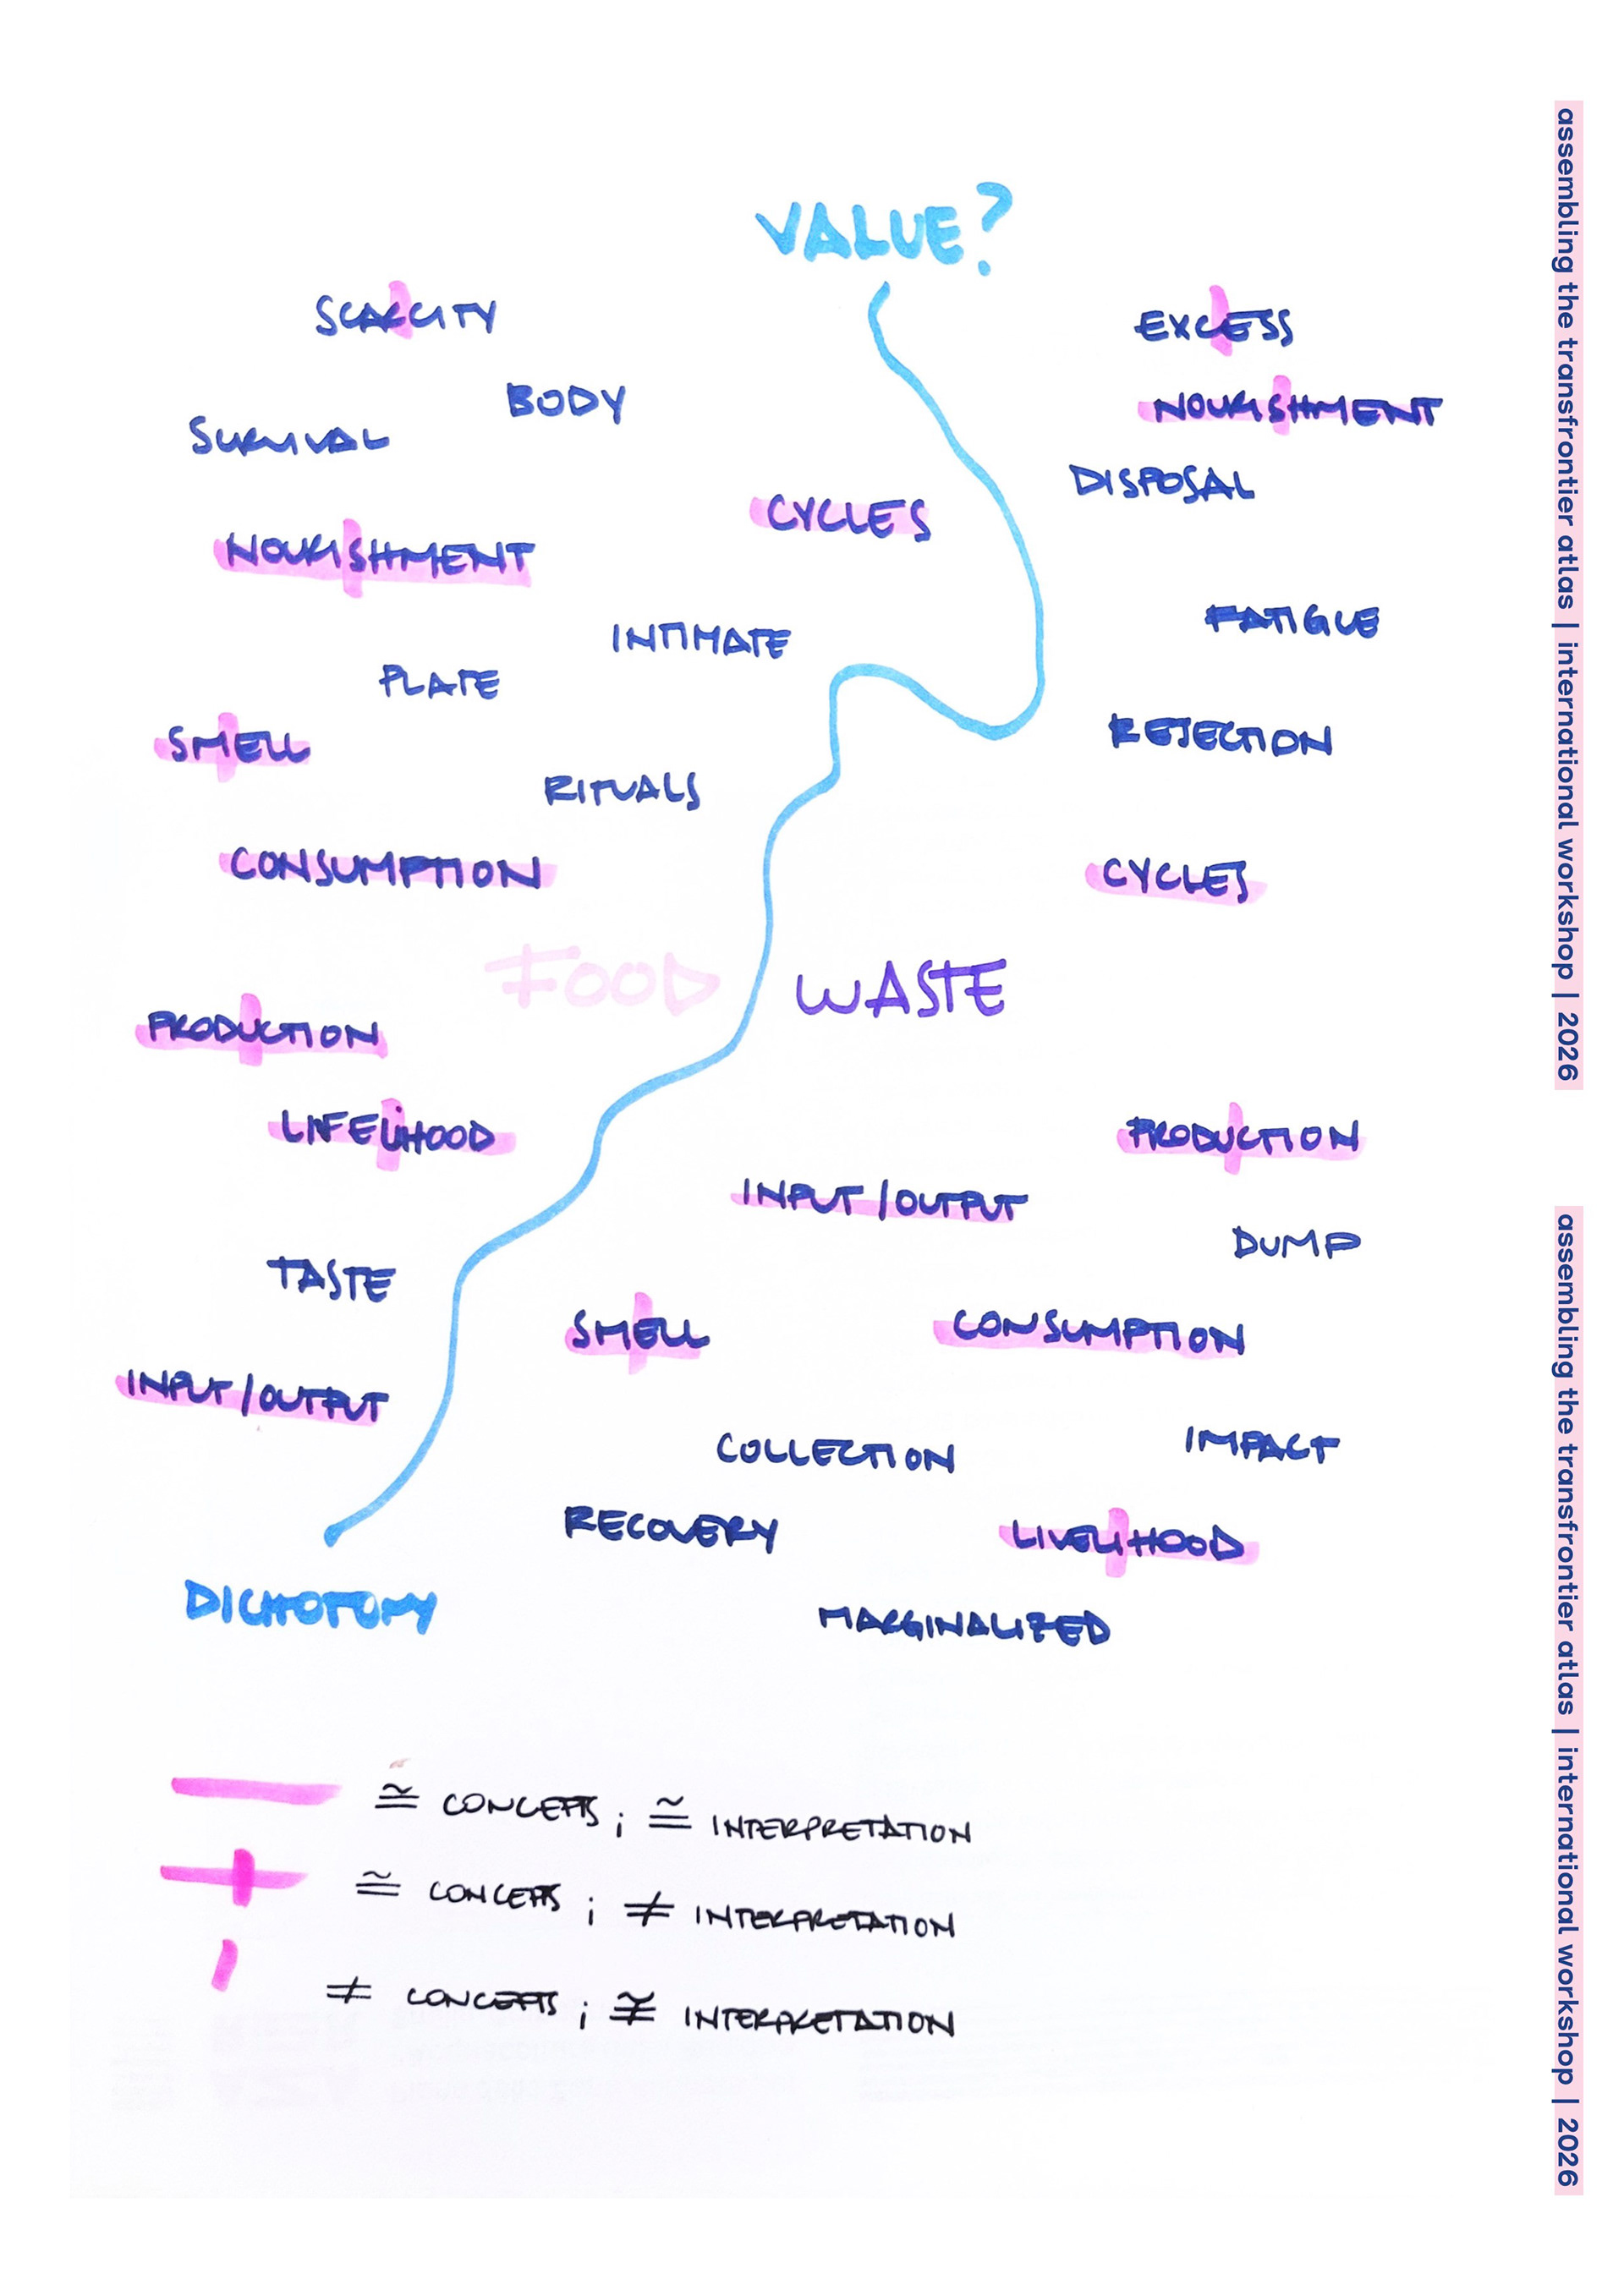 VALUE?
SCARCITY
BODY
SURVIVAL
CYCLES
NOURISHMENT
INTIMATE
PLATE
SMELL
RITUALS
CONSUMPTION
FOOD
PRODUCTION
LIFELIHOOD
TASTE
INPUT/OUTPUT
DICHOTOMY
EXCESS
NOURISHMENT
DISPOSAL
FATIGUE
REJECTION
CYCLES
WASTE
PRODUCTION
INPUT/OUTPUT
DUMP
SMELL
CONSUMPTION
COLLECTION
IMPACT
RECOVERY
LIVELIHOOD
MARGINALIZED
≅ CONCEPTS ; ≅ INTERPRETATION
≅ CONCEPTS ; ≠ INTERPRETATION
≠ CONCEPTS ; ≇ INTERPRETATION
assembling the transfrontier atlas | international workshop | 2026
assembling the transfrontier atlas | international workshop | 2026